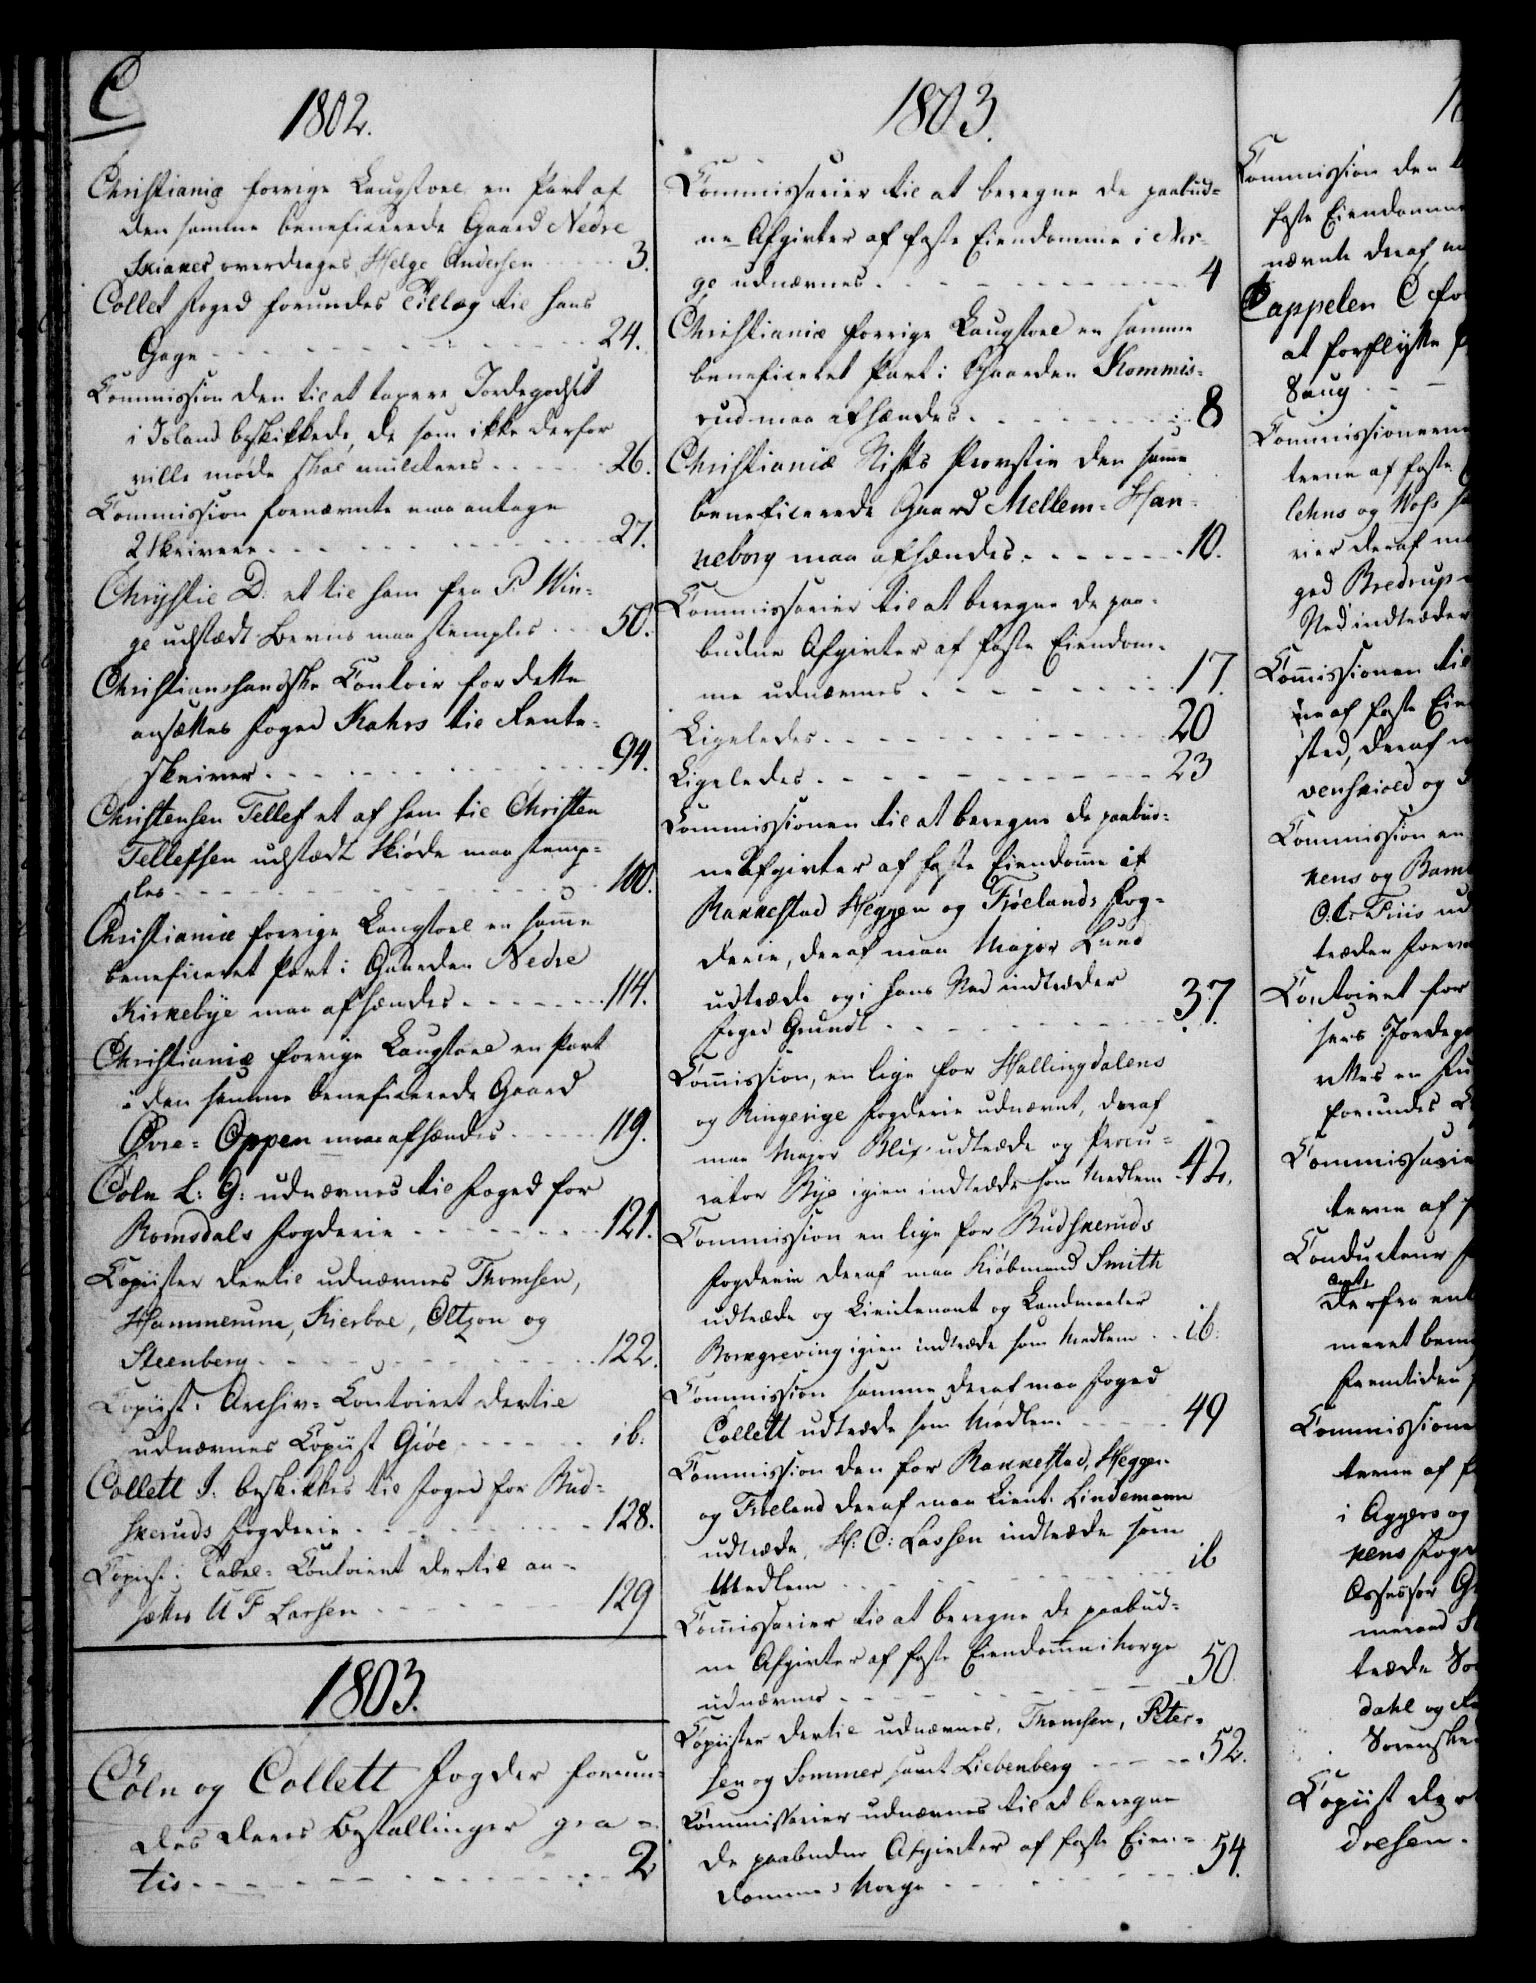 C
1802.
Christiania forrige Laugstoel en Part af
den samme beneficerede Gaard Nedre
Skianes overdrages Helge Andersen - - - 3.
Collet Foged forundes Tillæg til hans
Gage - - - 24.
Commission den til at taxere Jordegodset
i Island beskikkede, de som ikke derfor
ville møde skal mulcteres - - - 26.
Commission fornævnte maa antage
2 Skrivere - - - 27.
Chrÿstie D: et til ham fra P. Win-
ge udstædt Beviis maa stemples - - - 50.
Christianssandsske Contoir for dette
ansættes Foged Kahrs til Rente-
skriver - - - 94.
Christensen Tellef et af ham til Christen
Tellefsen udstædt Skiøde maa stemp-
les - - - 100.
Christiania forrige Laugstoel en samme
beneficeret Part i Gaarden Nedre
Kirkebye maa afhændes - - - 114.
Christiania forrige Laugstoel en Part
i den samme beneficerede Gaard
Øvre-Oppen maa afhændes - - - 119.
Cöln L: G: udnævnes til Foged for
Romsdals Fogderie - - - 121.
Copiister dertil udnævnes Thomsen,
Hammerum, Kierboe, Oltzon og
Steenberg - - - 122.
Copiist i Archiv-Contoiret dertil
udnævnes Copiist Giöe - - - ib.
Collett J. beskikkes til Foged for Bud-
skeruds Fogderie - - - 128.
Copiist i Tabel-Contoiret dertil an-
sættes U F Larsen - - - 129
1803.
Cöln og Collett Fogder forun-
des deres Bestallinger gra-
tis - - - 2
1803.
Commissarier til at beregne de paabud-
ne Afgivter af faste Eiendomme i Nor-
ge udnævnes - - - 4
Christiania forrige Laugstoel en samme
beneficeret Part i Gaarden Kommis-
rud maa afhændes - - - 8
Christianiæ Stifts Provstie den samme
beneficerede Gaard Mellem-Han-
neborg maa afhændes - - - 10.
Commissarier til at beregne de paa-
budne Afgivter af faste Eiendom-
me udnævnes - - - 17.
Ligeledes - - - 20
Ligeledes - - - 23
Commissionen til at beregne de paabud-
ne Afgivter af faste Eiendomme i
Rakkestad Heggen og Frøelands Fog-
derie, deraf maa Major Lund
udtræde og i hans Sted indtræder
Foged Grundt - - - 37.
Commission, en lige for Hallingdalens
og Ringerige Fogderie udnævnt, deraf
maa Major Blix udtræde og Procu-
rator Bÿe igien indtræde som Medlem - 42.
Commission en lige for Budskeruds
Fogderie deraf maa Kiøbmand Smith
udtræde og Lieutenant og Landmaaler
Borngreving igien indtræde som Medlem - - ib:
Commission samme deraf maa Foged
Collett udtræde som Medlem - - - 49
Commission den for Rakkestad, Heggen
og Frøeland deraf maa Lieut. Lindemann
udtræde, H: C: Lassen indtræde som
Medlem - - - ib
Commissarier til at beregne de paabud-
ne Afgivter af faste Eiendomme i Norge
udnævnes - - - 50.
Copiister dertil udnævnes, Thomsen, Peter-
sen og Sommer samt Liebenberg - - - 52.
Commissarier udnævnes til at beregne
de paabudne Afgivter af faste Eien-
domme i Norge - - - 54.
Commission den
faste Eiendomme
nævnte deraf
Cappelen C for
at forflytte
Saug - -
Commissionerne
terne af faste
lehns og Mosse
rier deraf
ged Bredrup
Sted indtræder
Commissionen til
ne af faste Eien
sted, deraf
venskiold og
Commission en
kens og Bam
O. C. Fiis ud
træden
Contoiret for
sers Jordego
ettes en Fu
forundes
Commissarie
terne af
Conducteur
derfra ent
meret
fremtiden
Commissione
terne af
i Aggers og
kens Foged
Assessor G
merraad
træde
dahl og
Sorenskr
Copiist der
dresen.